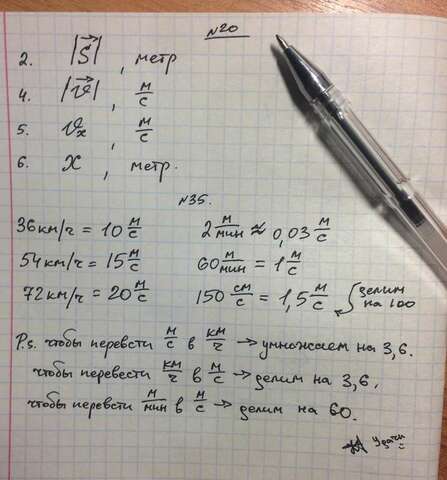 №20
2. |S⃗|, метр
4. |v⃗|, м/с
5. vₓ, м/с
6. x, метр.
№35.
36км/ч = 10 м/с 2 м/мин ≈ 0,03 м/с
54км/ч = 15 м/с 60 м/мин = 1 м/с
72км/ч = 20 м/с 150 см/с = 1,5 м/с делим на 100
P.s. чтобы перевести м/с в км/ч → умножаем на 3,6.
чтобы перевести км/ч в м/с → делим на 3,6,
чтобы перевсти м/мин в м/с → делим на 60.
Удачи